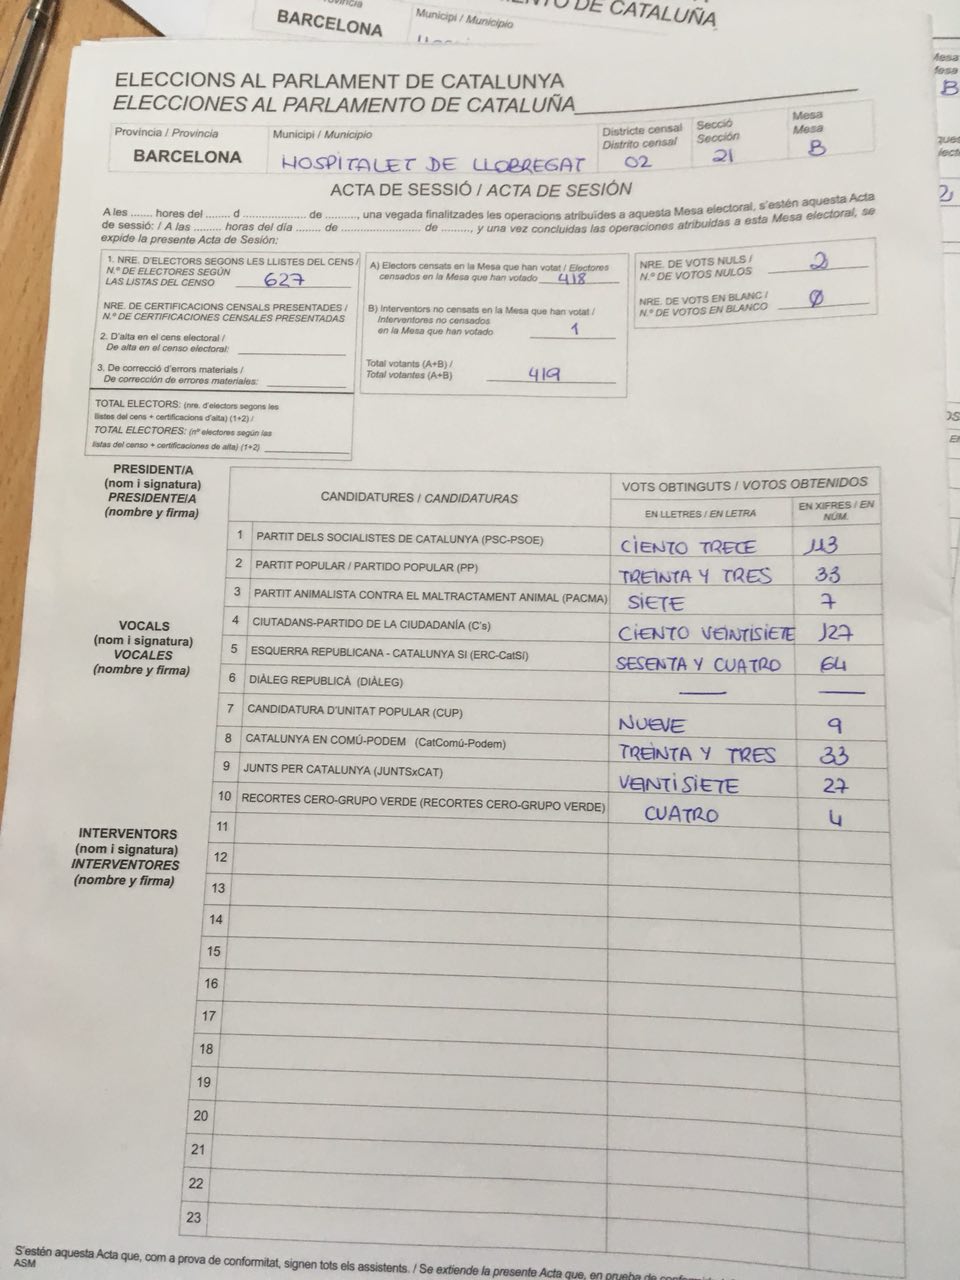 BARCELONA
Municipi / Municipio
DE CATALUÑA
ELECCIONS AL PARLAMENT DE CATALUNYA
ELECCIONES AL PARLAMENTO DE CATALUÑA
Província / Provincia
BARCELONA
Municipi / Municipio
HOSPITALET DE LLOBREGAT
Districte censal
Distrito censal
02
Secció
Sección
21
Mesa
Mesa
B
ACTA DE SESSIÓ / ACTA DE SESIÓN
A les ....... hores del ....... d .................. de ........., una vegada finalitzades les operacions atribuïdes a aquesta Mesa electoral, s'estén aquesta Acta
de sessió: / A las ......... horas del día ....... de ...................... de ........., y una vez concluidas las operaciones atribuidas a esta Mesa electoral, se
expide la presente Acta de Sesión:
1. NRE. D'ELECTORS SEGONS LES LLISTES DEL CENS /
N.º DE ELECTORES SEGÚN
LAS LISTAS DEL CENSO 627
NRE. DE CERTIFICACIONS CENSALS PRESENTADES /
N.º DE CERTIFICACIONES CENSALES PRESENTADAS
2. D'alta en el cens electoral /
De alta en el censo electoral:
3. De correcció d'errors materials /
De corrección de errores materiales:
TOTAL ELECTORS: (nre. d'electors segons les
llistes del cens + certificacions d'alta) (1+2) /
TOTAL ELECTORES: (nº electores según las
listas del censo + certificaciones de alta) (1+2)
A) Electors censats en la Mesa que han votat / Electores
censados en la Mesa que han votado 418
B) Interventors no censats en la Mesa que han votat /
Interventores no censados
en la Mesa que han votado 1
Total votants (A+B) /
Total votantes (A+B) 419
NRE. DE VOTS NULS /
N.º DE VOTOS NULOS 2
NRE. DE VOTS EN BLANC /
N.º DE VOTOS EN BLANCO Ø
PRESIDENT/A
(nom i signatura)
PRESIDENTE/A
(nombre y firma)
VOCALS
(nom i signatura)
VOCALES
(nombre y firma)
INTERVENTORS
(nom i signatura)
INTERVENTORES
(nombre y firma)
CANDIDATURES / CANDIDATURAS
VOTS OBTINGUTS / VOTOS OBTENIDOS
EN LLETRES / EN LETRA
EN XIFRES / EN
NÚM.
1 PARTIT DELS SOCIALISTES DE CATALUNYA (PSC-PSOE) CIENTO TRECE 113
2 PARTIT POPULAR / PARTIDO POPULAR (PP) TREINTA Y TRES 33
3 PARTIT ANIMALISTA CONTRA EL MALTRACTAMENT ANIMAL (PACMA) SIETE 7
4 CIUTADANS-PARTIDO DE LA CIUDADANÍA (C's) CIENTO VEINTISIETE 127
5 ESQUERRA REPUBLICANA - CATALUNYA SÍ (ERC-CatSí) SESENTA Y CUATRO 64
6 DIÀLEG REPUBLICÀ (DIÀLEG) — —
7 CANDIDATURA D'UNITAT POPULAR (CUP) NUEVE 9
8 CATALUNYA EN COMÚ-PODEM (CatComú-Podem) TREINTA Y TRES 33
9 JUNTS PER CATALUNYA (JUNTSxCAT) VEINTISIETE 27
10 RECORTES CERO-GRUPO VERDE (RECORTES CERO-GRUPO VERDE) CUATRO 4
11
12
13
14
15
16
17
18
19
20
21
22
23
S'estén aquesta Acta que, com a prova de conformitat, signen tots els assistents. / Se extiende la presente Acta que, en prueba de
ASM